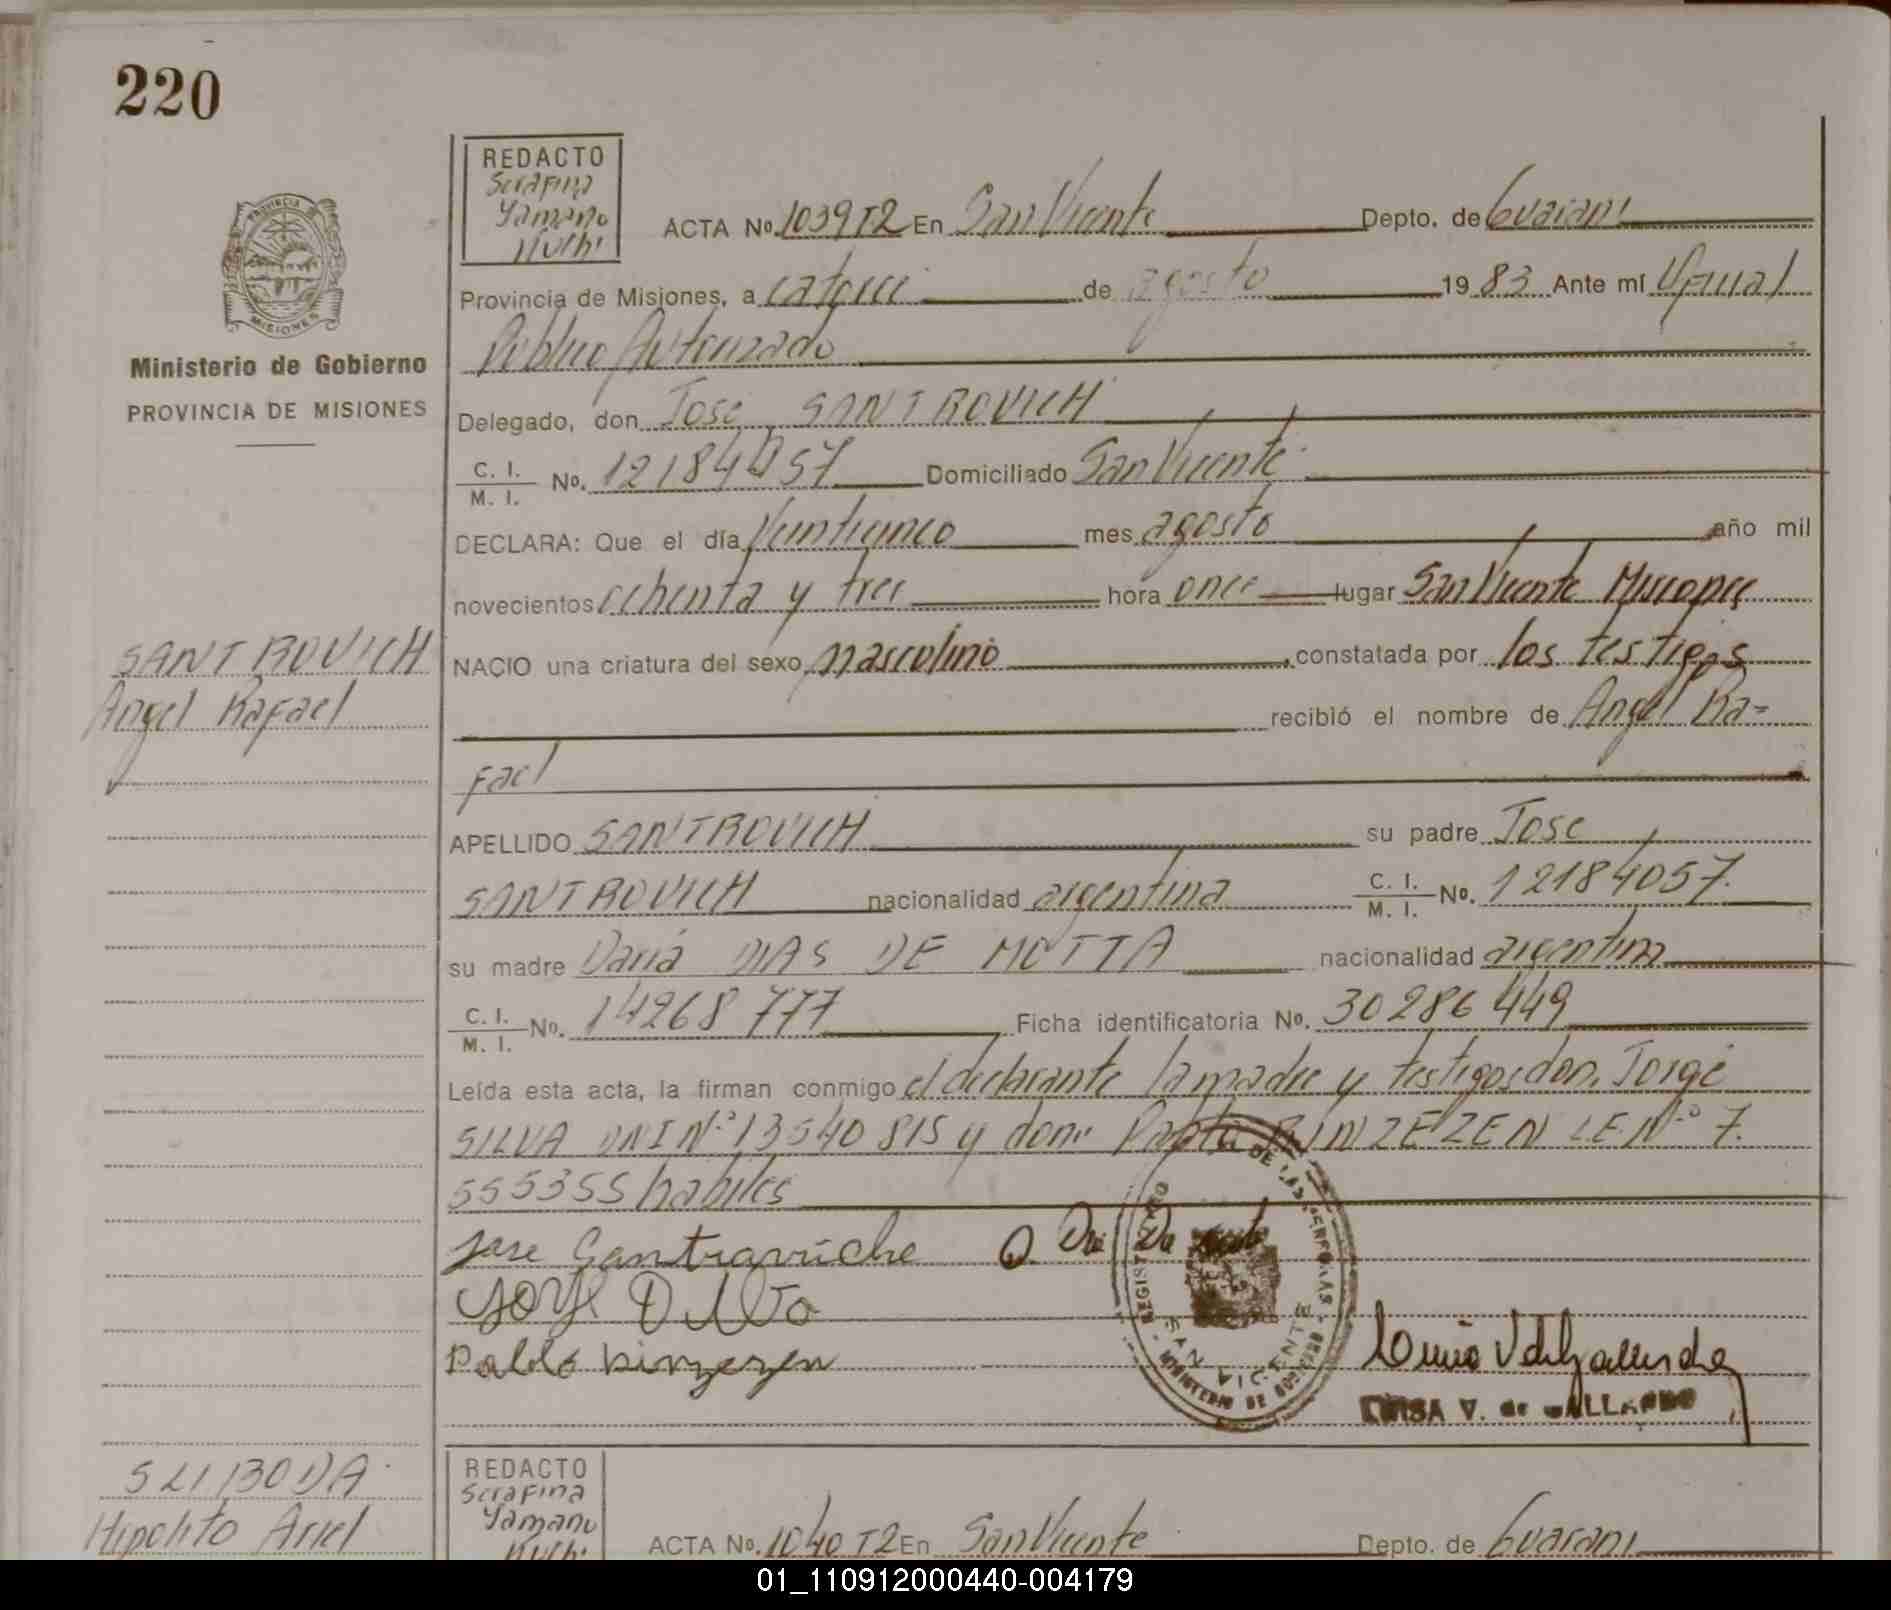 220
REDACTO
Serafina
Yamano
Kuchi
ACTA No. 1039 T2 En San Vicente Depto. de Guarani
Provincia de Misiones, a catorce de agosto 1983 Ante mí Oficial
Público Autorizado
PROVINCIA
MISIONES
Ministerio de Gobierno
PROVINCIA DE MISIONES
Delegado, don Jose SANTROVICH
C. I. / M. I. No. 12184057 Domiciliado San Vicente
DECLARA: Que el día Veinticinco mes agosto año mil
novecientos ochenta y tres hora once lugar San Vicente Misiones
SANTROVICH
Angel Rafael
NACIO una criatura del sexo masculino constatada por los testigos
recibió el nombre de Angel Ra=
fael
APELLIDO SANTROVICH su padre Jose
SANTROVICH nacionalidad argentina C. I. / M. I. No. 12184057.
su madre Daria DIAS DE MOTTA nacionalidad argentina
C. I. / M. I. No. 14268777 Ficha identificatoria No. 30286449
Leída esta acta, la firman conmigo el declarante la madre y testigos don. Jorge
SILVA DNI Nº 13540815 y don Pablo BINZEZEN LE Nº 7.
555355 habiles
Jose Santraviche
Pablo Binzezen
REGISTRO DE LAS PERSONAS
SAN VICENTE
MINISTERIO DE GOBIERNO
LUISA V. de GALLARDO
SLIBODA
Hipolito Ariel
REDACTO
Serafina
Yamano
Kuchi
ACTA No. 1040 T2 En San Vicente Depto. de Guarani
01_110912000440-004179